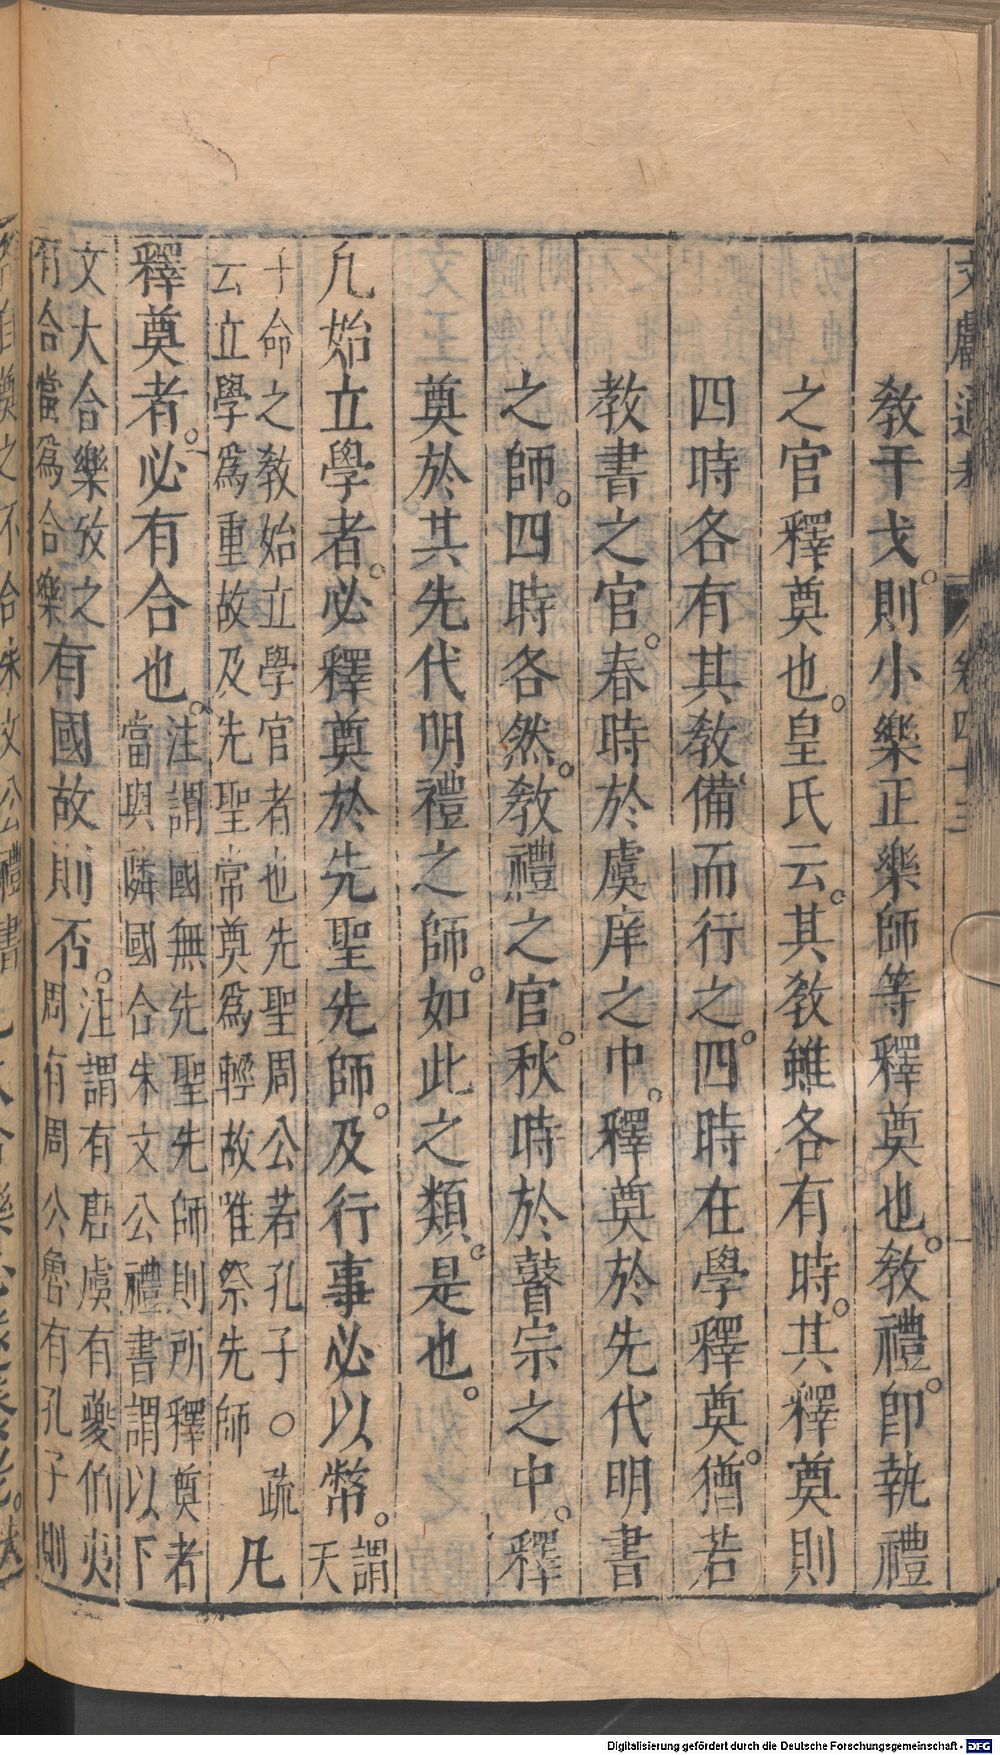 文獻通考 卷四十三
教干戈。則小樂正樂師等釋奠也。教禮。卽執禮
之官釋奠也。皇氏云。其教雖各有時。其釋奠則
四時各有其教備而行之。四時在學釋奠。猶若
教書之官。春時於虞庠之中。釋奠於先代明書
之師。四時各然。教禮之官。秋時於瞽宗之中。釋
奠於其先代明禮之師。如此之類。是也。
凡始立學者。必釋奠於先聖先師。及行事必以幣。謂天
子命之教始立學官者也先聖周公若孔子○疏云立學爲重故及先聖常奠爲輕故惟祭先師 凡
釋奠者。必有合也。注謂國無先聖先師則所釋奠者當與隣國合朱文公禮書謂以下
文大合樂攷之有合當爲合樂有國故則否。注謂有唐虞有夔伯夷周有周公魯有孔子則
Digitalisierung gefördert durch die Deutsche Forschungsgemeinschaft - DFG